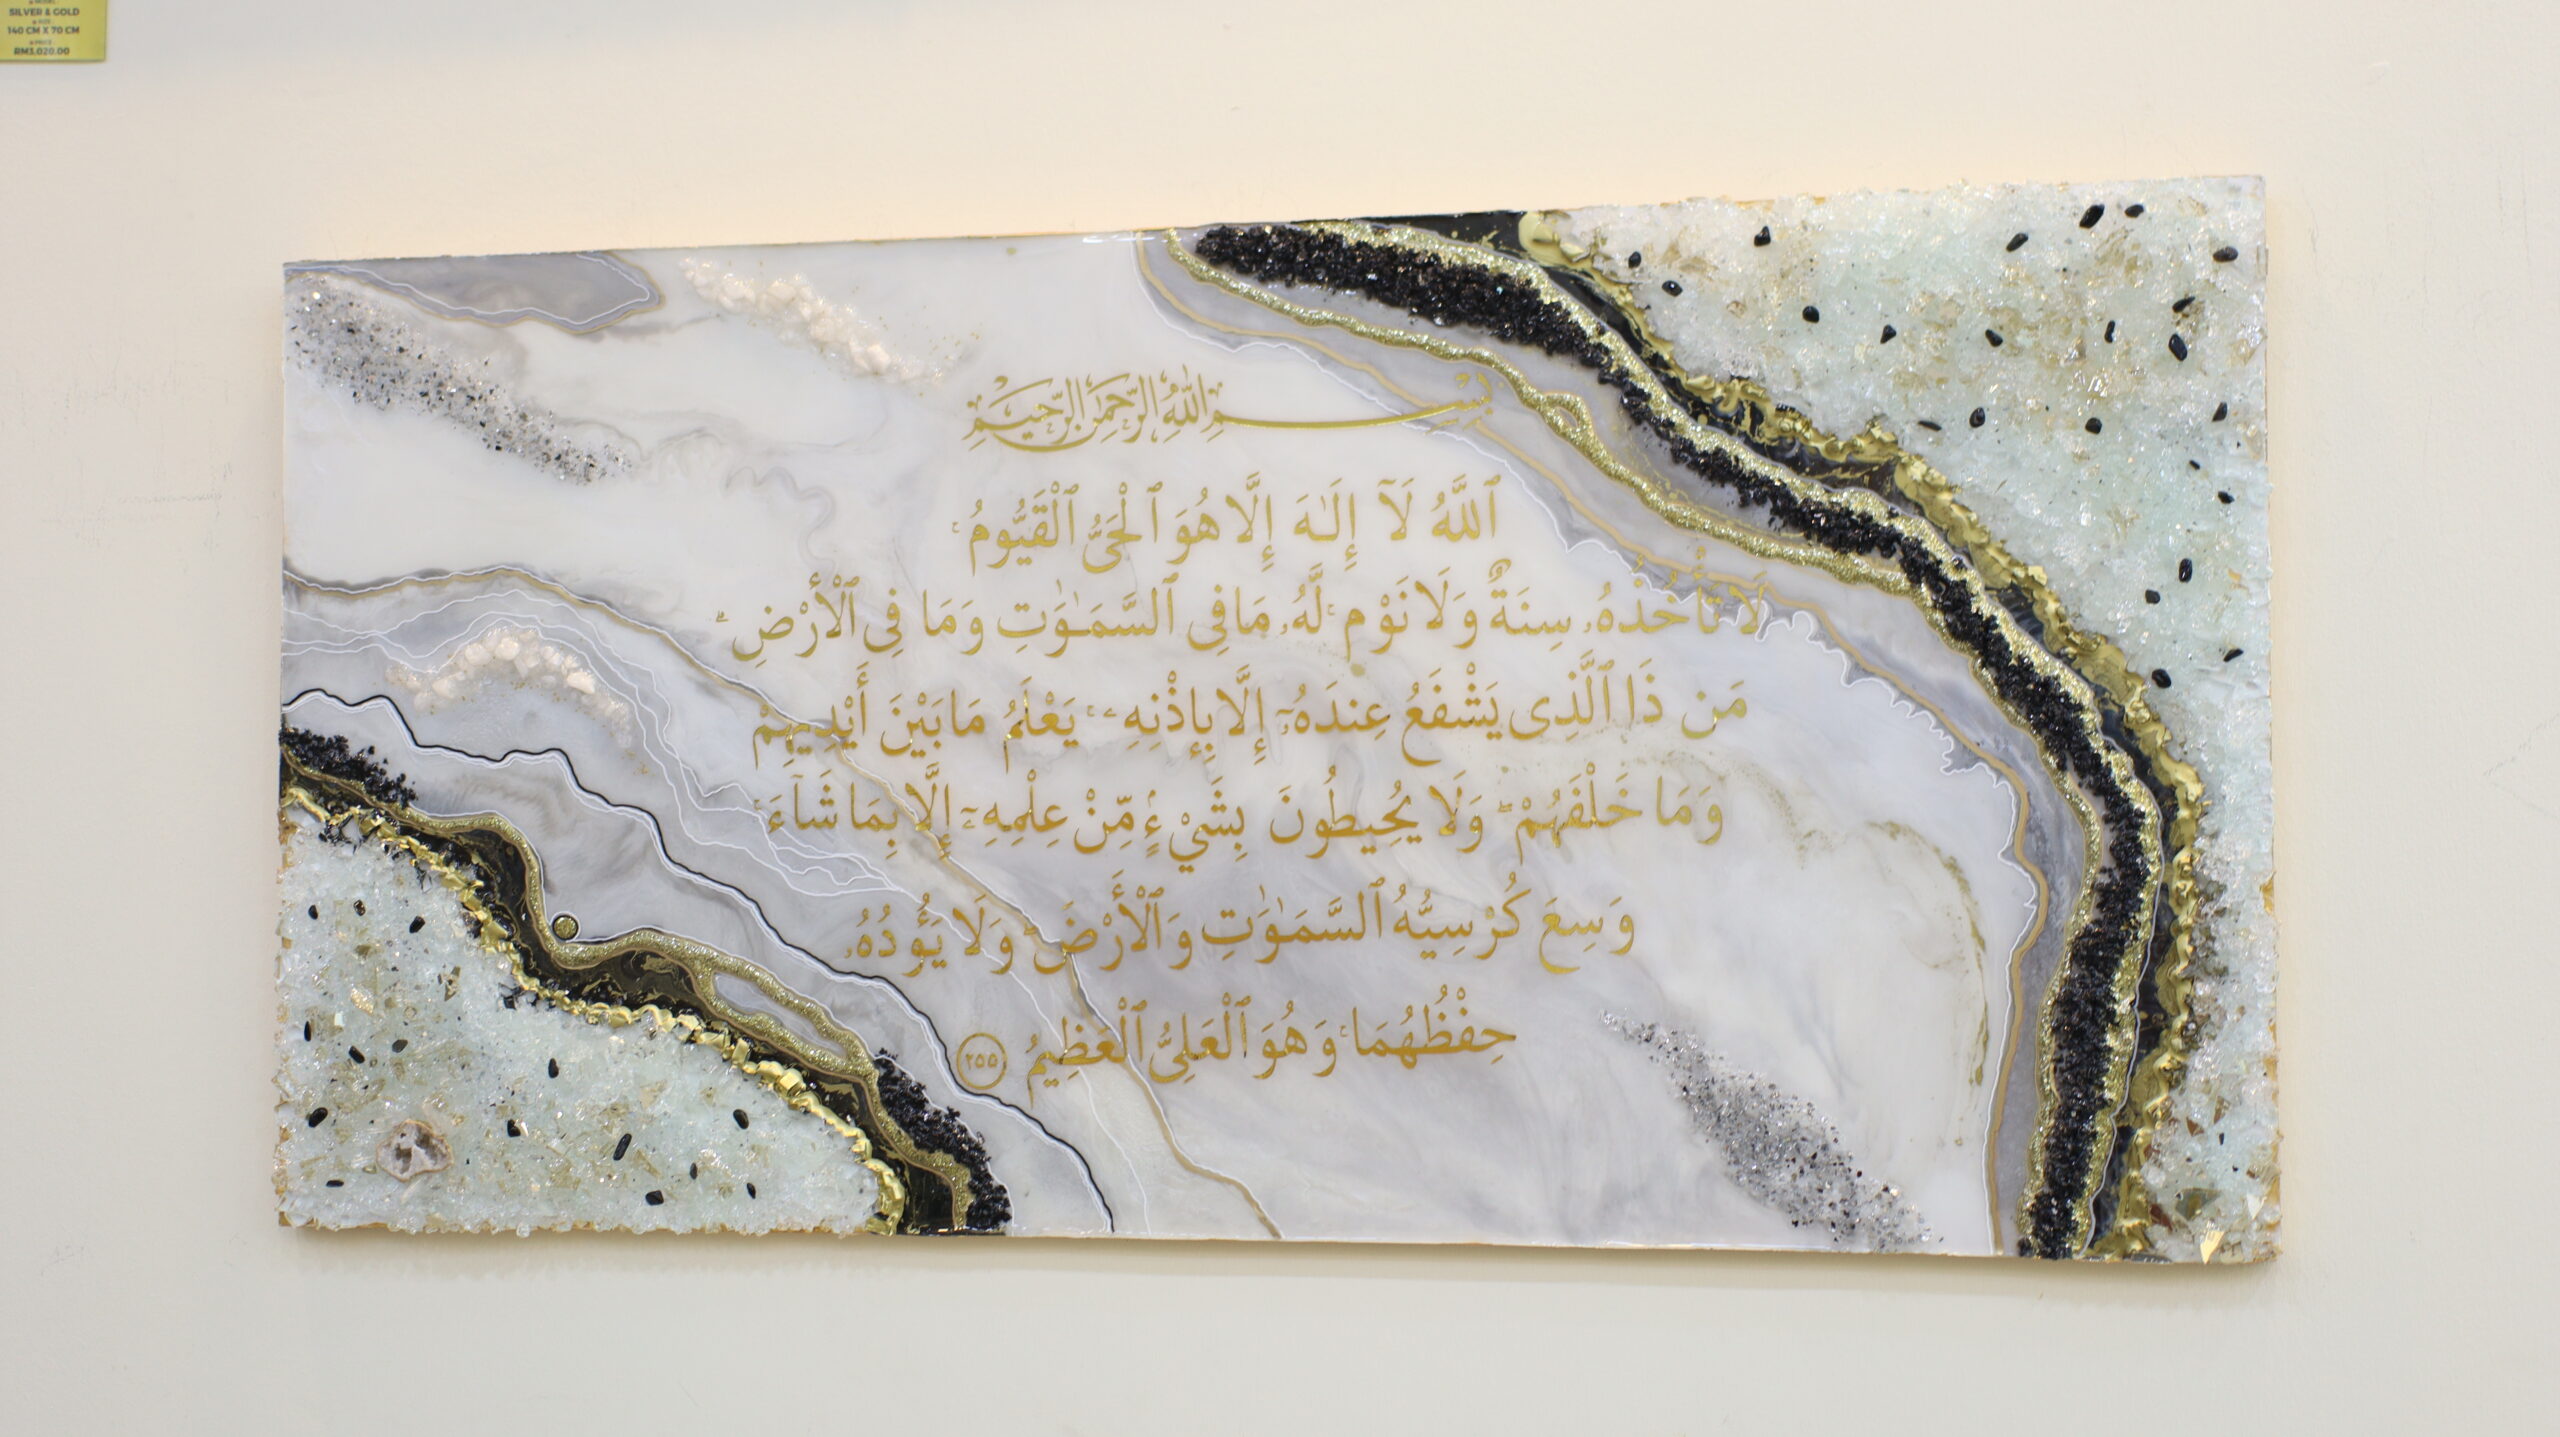 MODEL
SILVER & GOLD
SIZE
140 CM X 70 CM
PRICE
RM3,020.00
بِسْمِ اللَّهِ الرَّحْمَٰنِ الرَّحِيمِ
ٱللَّهُ لَآ إِلَـٰهَ إِلَّا هُوَ ٱلْحَىُّ ٱلْقَيُّومُ ۚ
لَا تَأْخُذُهُۥ سِنَةٌ وَلَا نَوْمٌ ۚ لَّهُۥ مَا فِى ٱلسَّمَـٰوَٰتِ وَمَا فِى ٱلْأَرْضِ ۗ
مَن ذَا ٱلَّذِى يَشْفَعُ عِندَهُۥٓ إِلَّا بِإِذْنِهِۦ ۚ يَعْلَمُ مَا بَيْنَ أَيْدِيهِمْ
وَمَا خَلْفَهُمْ ۖ وَلَا يُحِيطُونَ بِشَيْءٍ مِّنْ عِلْمِهِۦٓ إِلَّا بِمَا شَآءَ ۚ
وَسِعَ كُرْسِيُّهُ ٱلسَّمَـٰوَٰتِ وَٱلْأَرْضَ ۖ وَلَا يَـُٔودُهُۥ
حِفْظُهُمَا ۚ وَهُوَ ٱلْعَلِىُّ ٱلْعَظِيمُ ٢٥٥